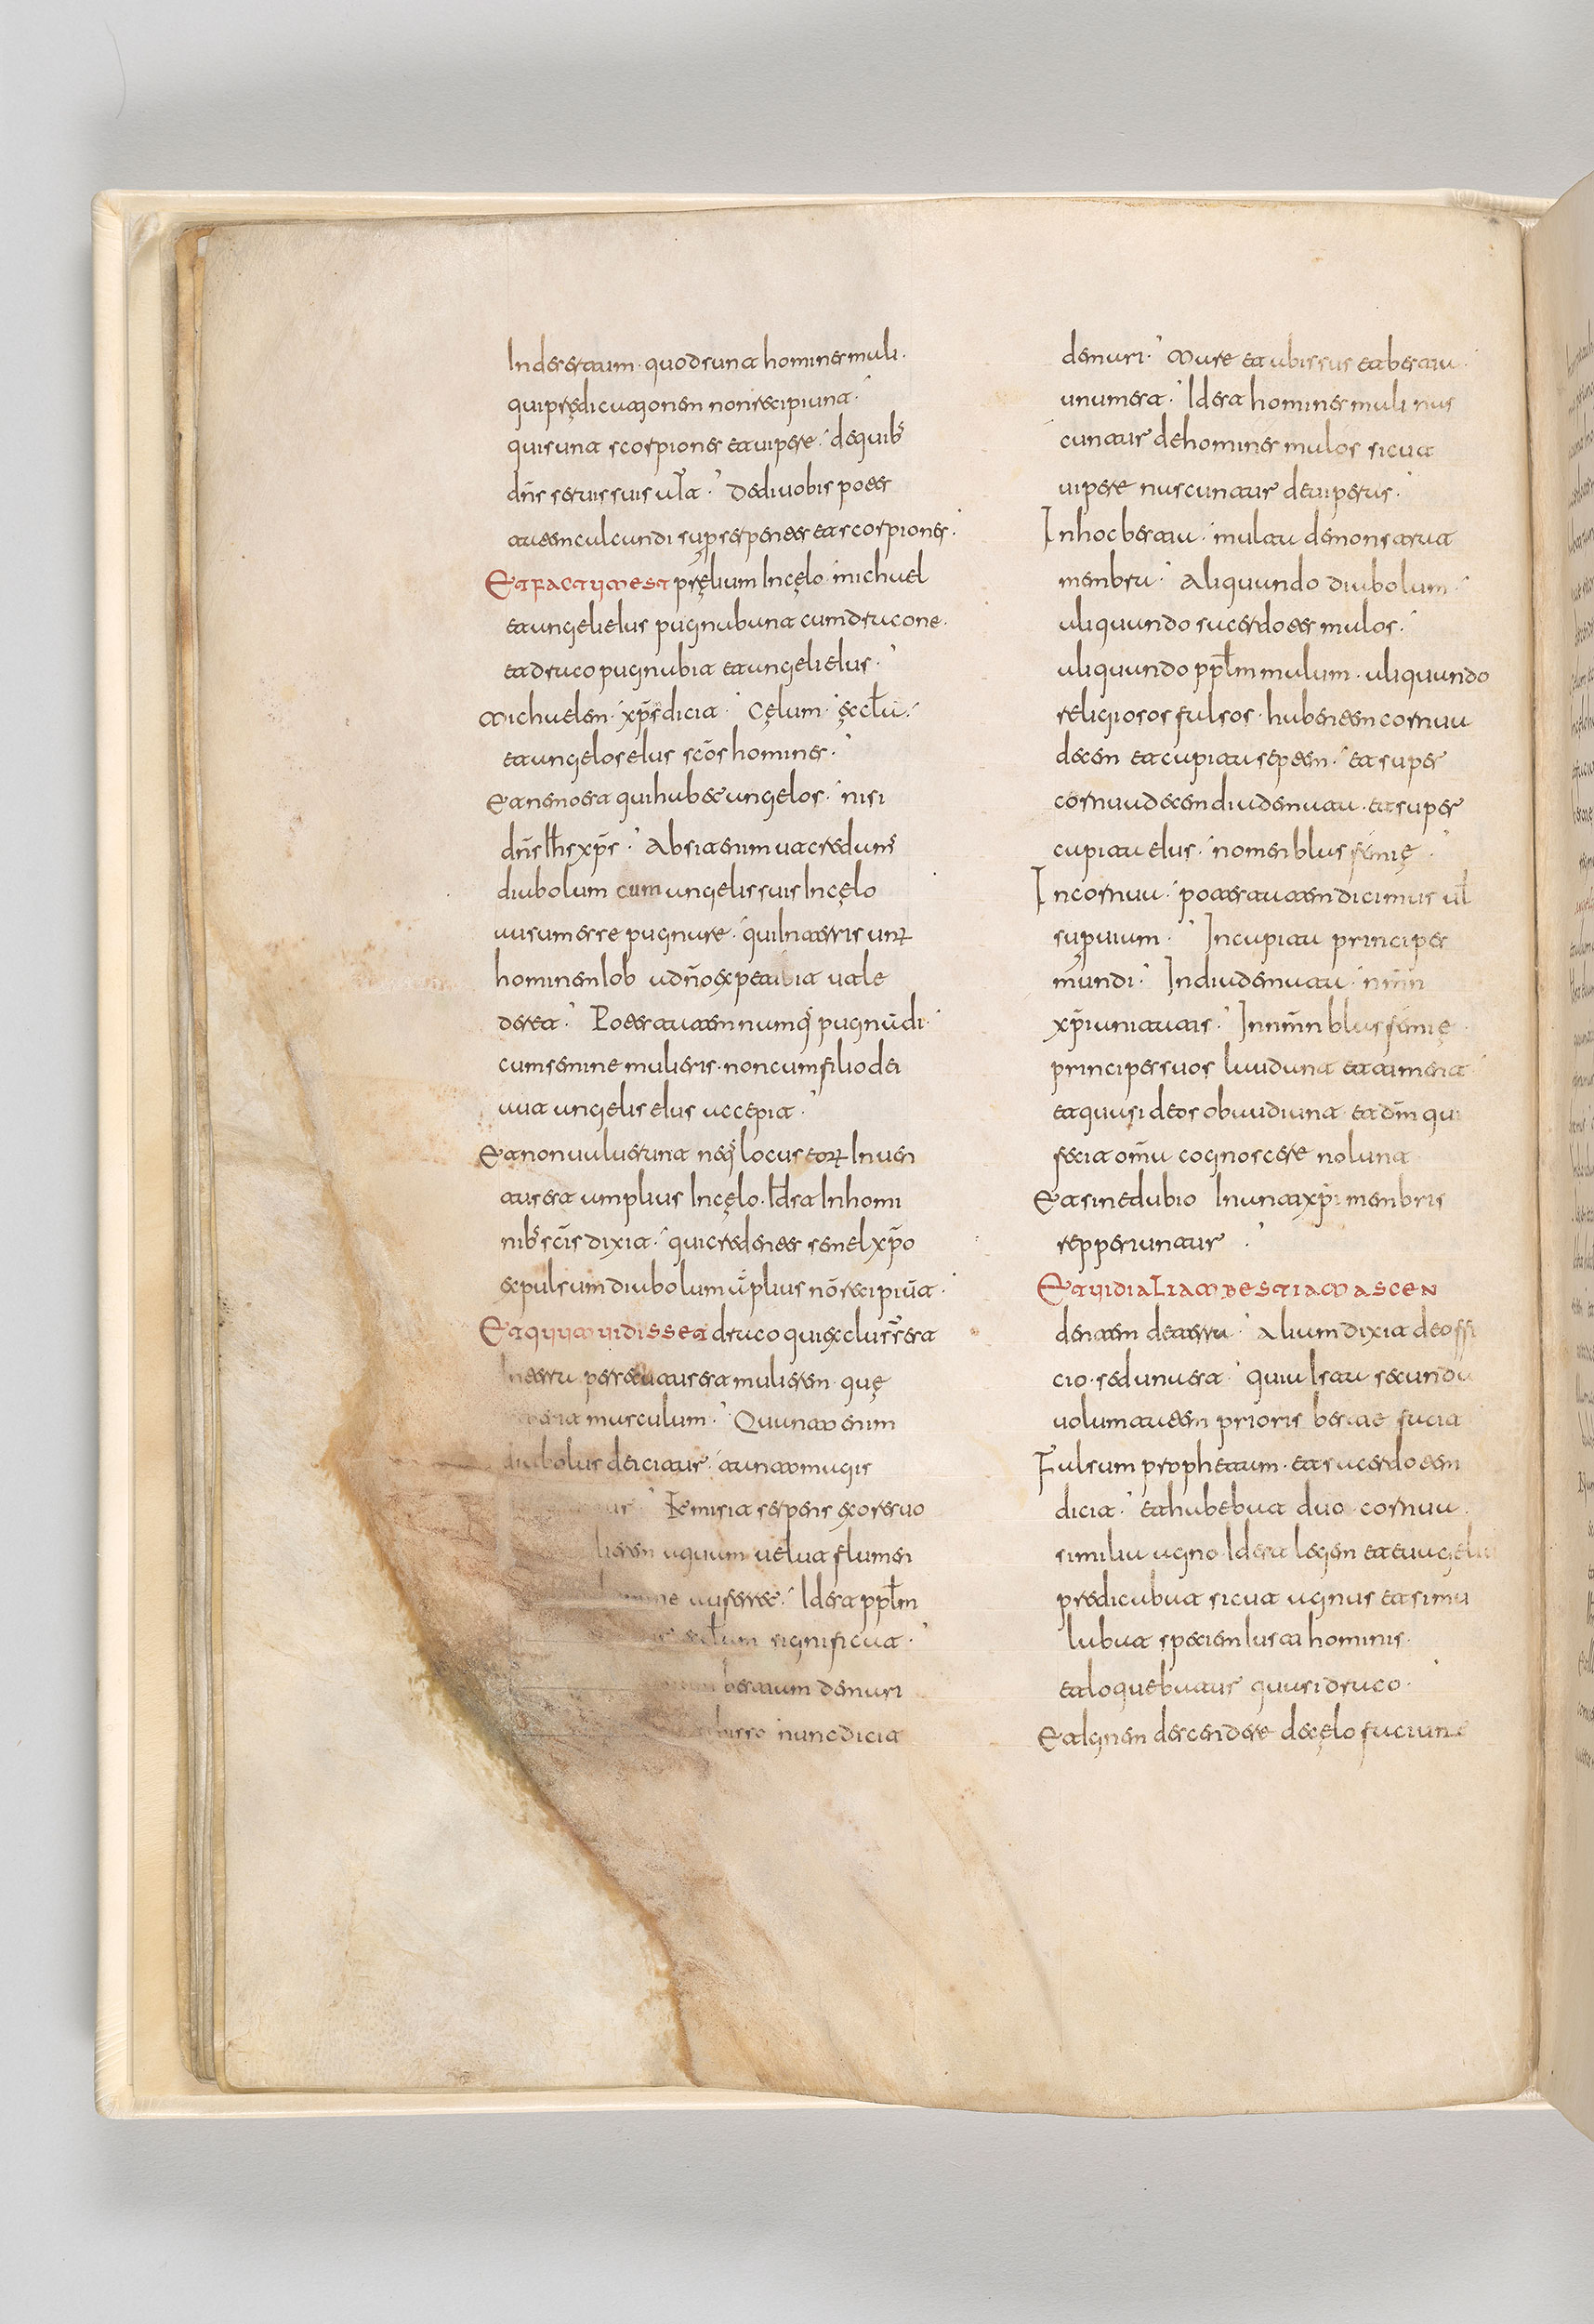 In desertum · quod sunt homines mali ·
qui prędicationem non recipiunt ·
qui sunt scorpiones et vipere · de quibꝰ
dn̄s servis suis ait · Dedi vobis potes
tatem calcandi sup̱ serpentes et scorpiones ·
Et factum est pręlium In cęlo · michael
et angeli eius pugnabant cum dracone ·
et draco pugnabat et angeli eius ·
Michaelem · xp̄m dicit · Cęlum · ęcl̄a ·
et angelos eius sc̄os homines ·
Et nemo est qui habet angelos · nisi
dn̄s Ih̄s xp̄s · Absit enim ut credamꝰ
diabolum cum angelis suis In cęlo
ausum esse pugnare · qui In terris unꝝ
hominem Iob a dn̄o expetibit ut le
deret · Potestatem namqꝫ pugnādi ·
cum semine mulieris · non cum filio dei
aut angelis eius accepit ·
Et non valuerunt neqꝫ locus eorꝝ Inven
tus est amplius In cęlo · Id est In homi
nibꝰ sc̄is dixit · qui credentes semel xp̄o
expulsum diabolum āplius nō recipiūt ·
Et qum vidisset draco qui exclusꝰ est
In terra persecutus est mulierem · quę
masculum · Quantum enim
diabolus deicitur · tantum magis
Et misit serpens ex ore suo
aquam velut flumen
auferret · Id est ppl̄m
ęcl̄am significat ·
bestiam de mari
abisso nunc dicit
de mari · Mare et abissus et bestia
unum est · Id est homines mali nas
cuntur de homines malos sicut
vipere nascuntur de viperis ·
In hoc bestia · multa demonstrat
membra · Aliquando diabolum ·
aliquando sacerdotes malos ·
aliquando ppl̄m malum · aliquando
religiosos falsos · habentem cornua
decem et capita septem · et super
cornua decem diademata · et super
capita eius · nomen blasfemię ·
In cornua · potestatem dicimus vl̄
sup̱bium · In capita principes
mundi · In diademata · nm̄n
xp̄ianitatis · In nm̄n blasfemię ·
principes suos laudant et timent
et quasi deos obaudiunt et dm̄ qui
fecit om̄a cognoscere nolunt
Et sine dubio In antixp̄i membris
repperiuntur ·
Et vidi aliam bestiam ascen
dentem de terra · Alium dixit de offi
cio · sed una est · quia Ista secundū
volumtatem prioris bestie facit
Falsum prophetam · et sacerdotem
dicit · et habebat duo cornua ·
similia agno Id est legem et evvgeliū
predicabat sicut agnus et simu
labat speciem Iusti hominis ·
et loquebatur quasi draco ·
Et Ignem descendere de cęlo faciunt